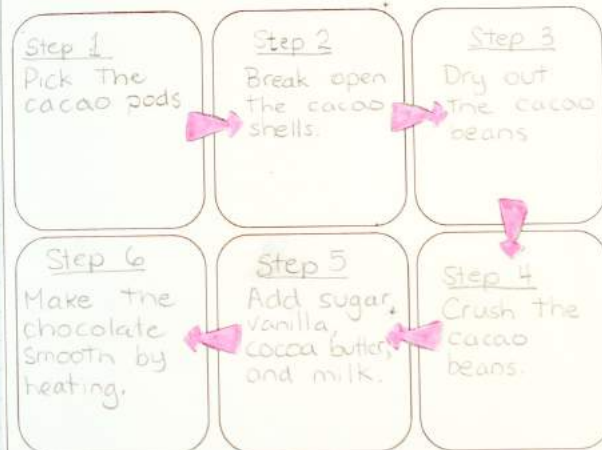 Step 1
Pick The
cacao pods
Step 2
Break open
the cacao
shells.
Step 3
Dry out
the cacao
beans
Step 4
Crush the
cacao
beans.
Step 5
Add sugar,
vanilla,
cocoa butter,
and milk.
Step 6
Make the
chocolate
smooth by
heating.